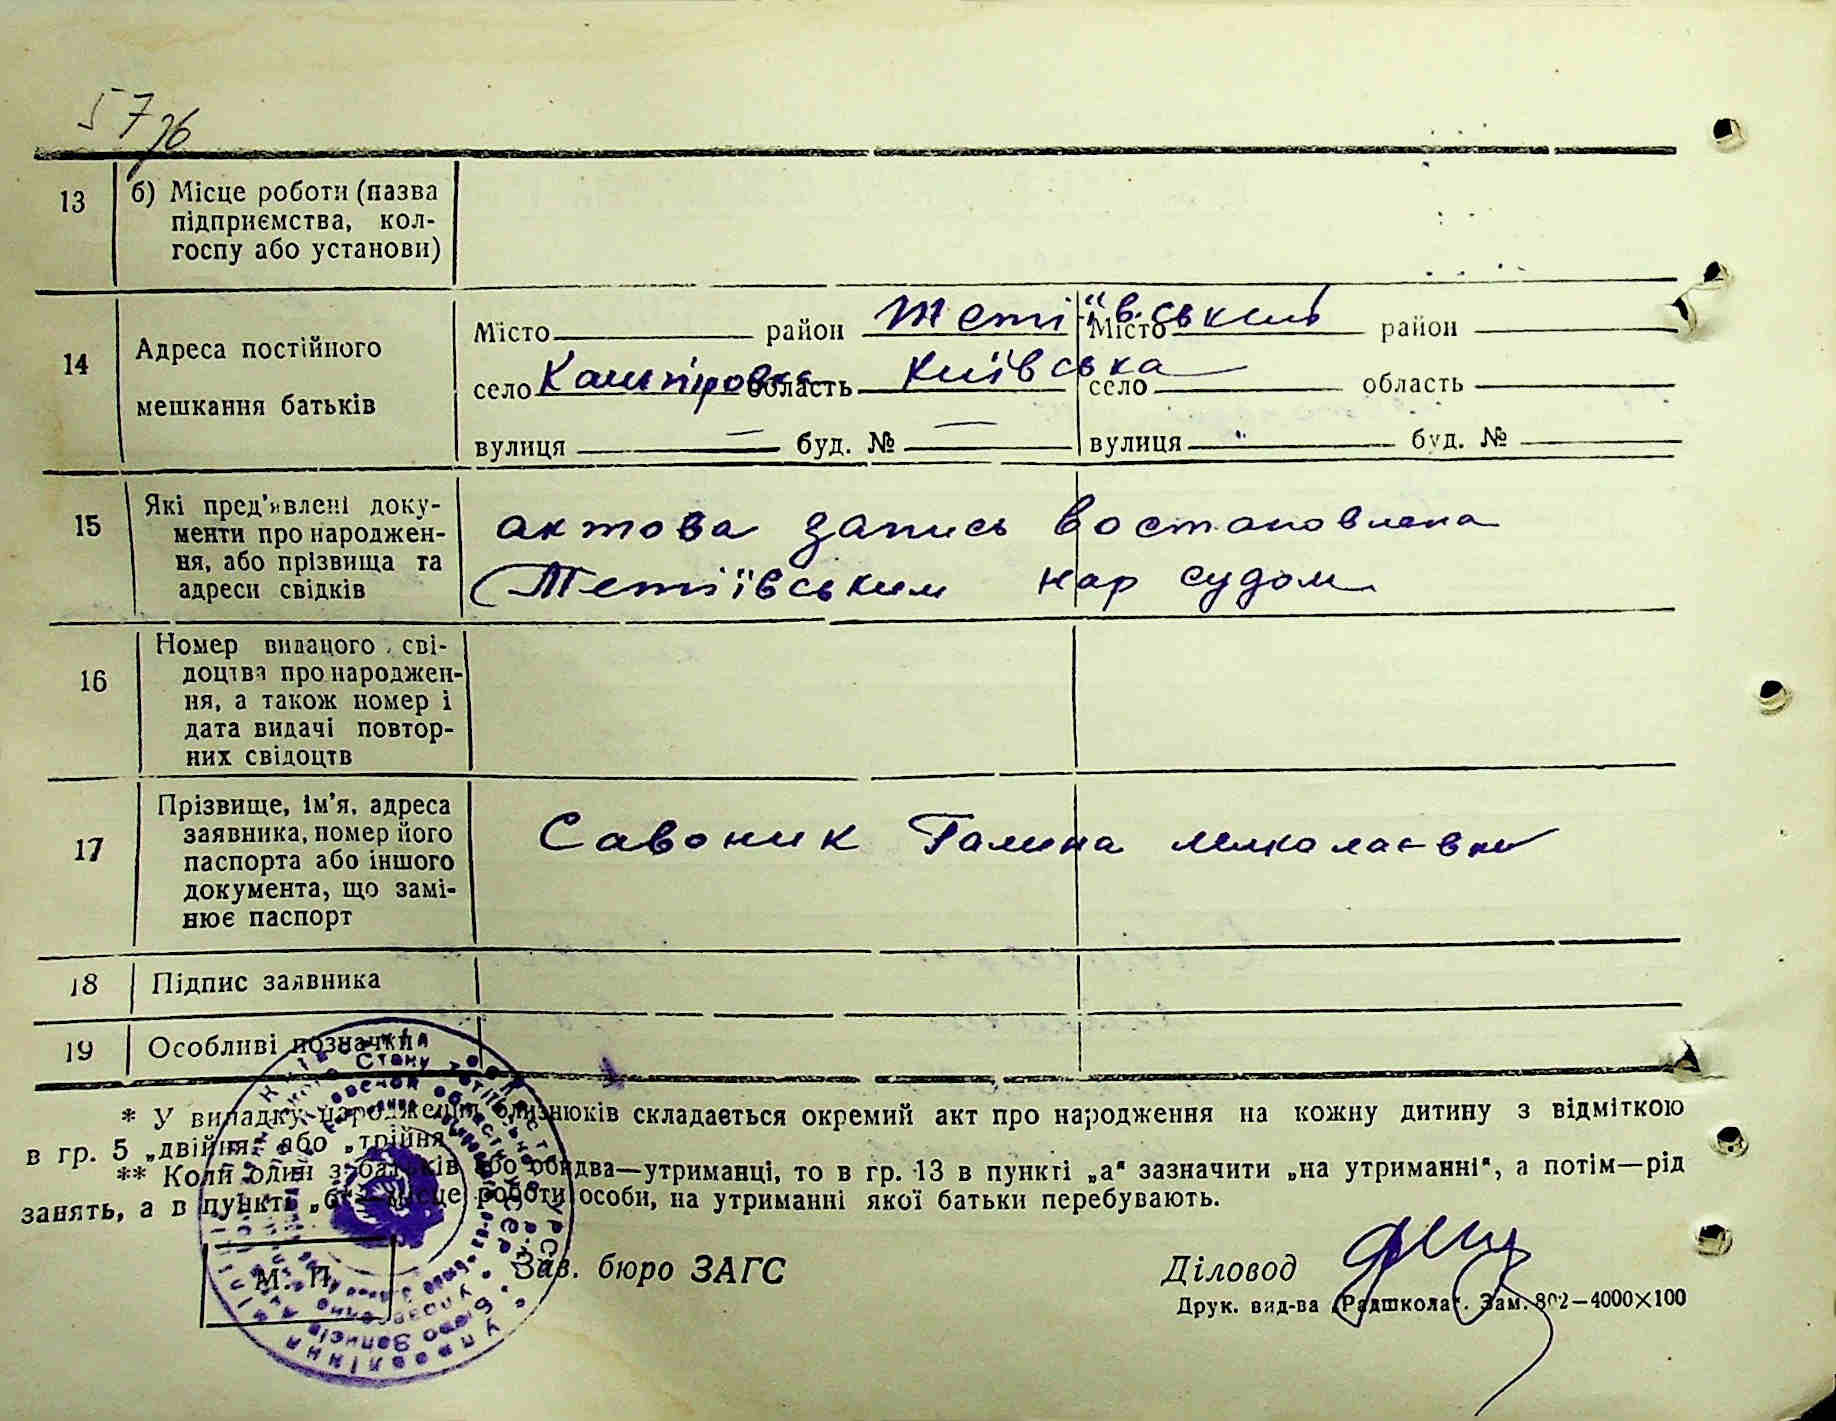 57
13 б) Місце роботи (назва
підприємства, кол-
госпу або установи)
14 Адреса постійного
мешкання батьків
Місто район Тетіївський Місто район
село Кашпіровка область Київська село область
вулиця — буд. № — вулиця " буд. №
15 Які пред'явлені доку-
менти про народжен-
ня, або прізвища та
адреси свідків
актова запись востановлена
Тетіївським нар судом
16 Номер виданого сві-
доцтва про народжен-
ня, а також номер і
дата видачі повтор-
них свідоцтв
17 Прізвище, ім'я, адреса
заявника, номер його
паспорта або іншого
документа, що замі-
нює паспорт
Савоник Галина Миколаєвна
18 Підпис заявника
19 Особливі позначки
* У випадку народження близнюків складається окремий акт про народження на кожну дитину з відміткою
в гр. 5 „двійня" або „трійня"
** Коли один з батьків або обидва—утриманці, то в гр. 13 в пункті „а" зазначити „на утриманні", а потім—рід
занять, а в пункті „б"—місце роботи особи, на утриманні якої батьки перебувають.
М. П. Зав. бюро ЗАГС Діловод
Друк. вид-ва „Радшкола". Зам. 802—4000×100